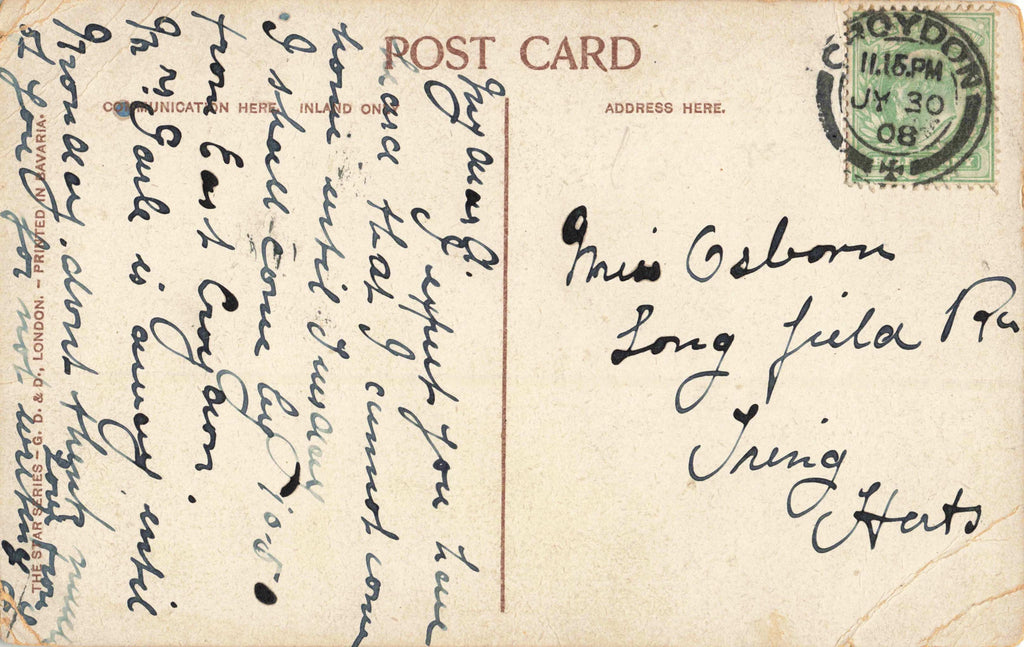 POST CARD
COMMUNICATION HERE. INLAND ONLY
ADDRESS HERE.
CROYDON
11.15.PM
JY 30
08
My dear G.
I expect you have
heard that I cannot come
home until Tuesday
I shall come by 7.0.5.0
from East Croydon.
Mr Earle is away until
Monday. dont think
of you for not writing to
Love from
Miss Osborn
Long field Rd
Tring
Herts
THE STAR SERIES - G. D. & D., LONDON. - PRINTED IN BAVARIA.